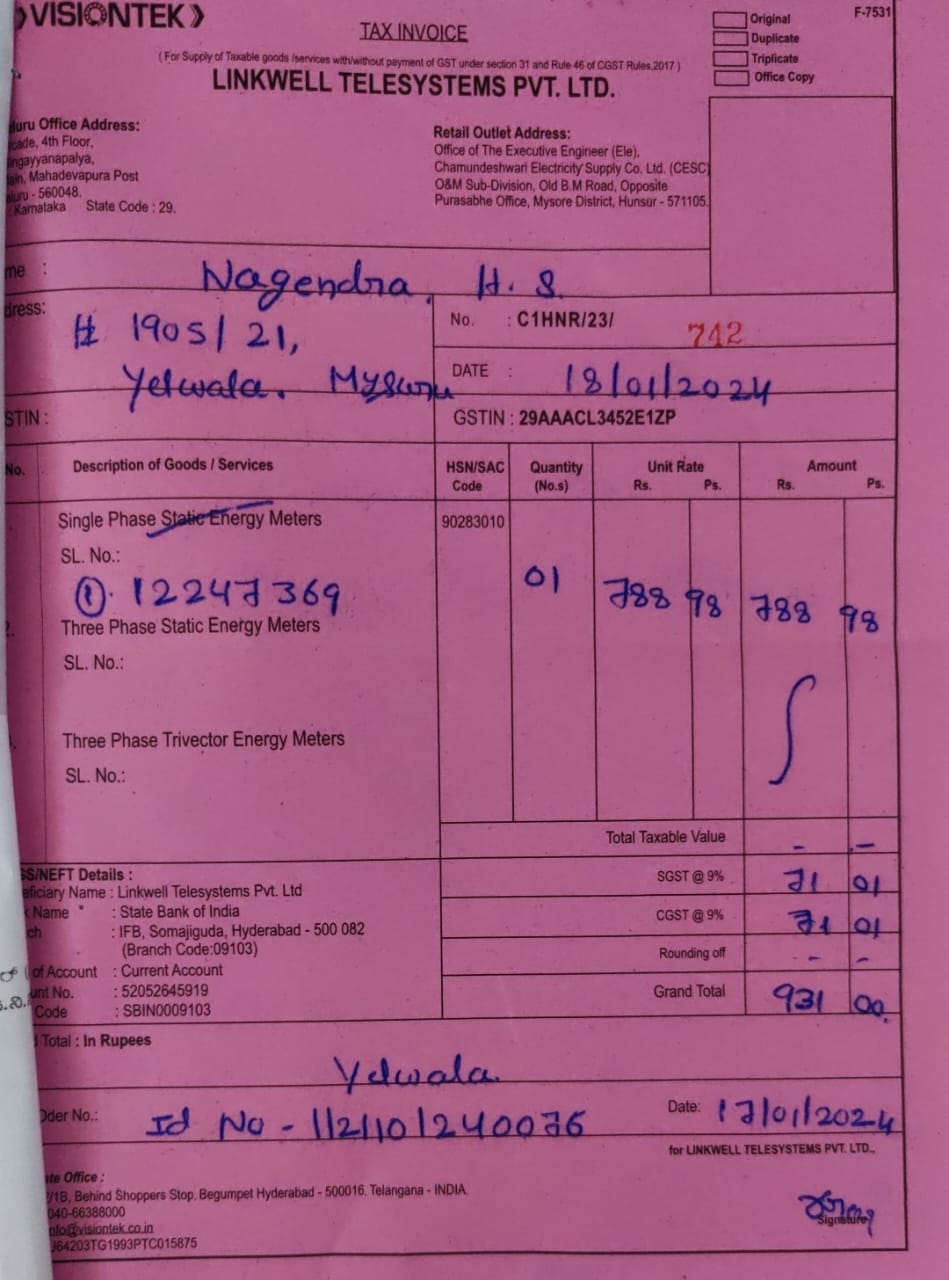 VISIONTEK
F-7531
TAX INVOICE
Original
Duplicate
Triplicate
Office Copy
( For Supply of Taxable goods /services with/without payment of GST under section 31 and Rule 46 of CGST Rules,2017 )
LINKWELL TELESYSTEMS PVT. LTD.
luru Office Address:
cade, 4th Floor,
ngayyanapalya,
ain, Mahadevapura Post
aluru - 560048.
Karnataka State Code : 29.
Retail Outlet Address:
Office of The Executive Engineer (Ele),
Chamundeshwari Electricity Supply Co. Ltd. (CESC)
O&M Sub-Division, Old B.M Road, Opposite
Purasabhe Office, Mysore District, Hunsur - 571105.
me : Nagendra. H. S.
dress:
# 1905/21,
Yelwala. Mysuru
No. : C1HNR/23/ 742
DATE : 18/01/2024
STIN :
GSTIN : 29AAACL3452E1ZP
No. Description of Goods / Services HSN/SAC Code Quantity (No.s) Unit Rate Rs. Ps. Amount Rs. Ps.
Single Phase Static Energy Meters 90283010
SL. No.:
①. 12247369 01 788 98 788 98
2. Three Phase Static Energy Meters
SL. No.:
Three Phase Trivector Energy Meters
SL. No.:
Total Taxable Value - -
SGST @ 9% 71 01
CGST @ 9% 71 01
Rounding off - -
Grand Total 931 00.
GS/NEFT Details :
eficiary Name : Linkwell Telesystems Pvt. Ltd
k Name : State Bank of India
ch : IFB, Somajiguda, Hyderabad - 500 082
(Branch Code:09103)
of Account : Current Account
unt No. : 52052645919
Code : SBIN0009103
Total : In Rupees
Yelwala.
Oder No.: Id No - 1121101240076
Date: 17/01/2024
for LINKWELL TELESYSTEMS PVT. LTD.,
ate Office :
/1B, Behind Shoppers Stop, Begumpet Hyderabad - 500016, Telangana - INDIA.
040-66388000
nfo@visiontek.co.in
U64203TG1993PTC015875
Signature